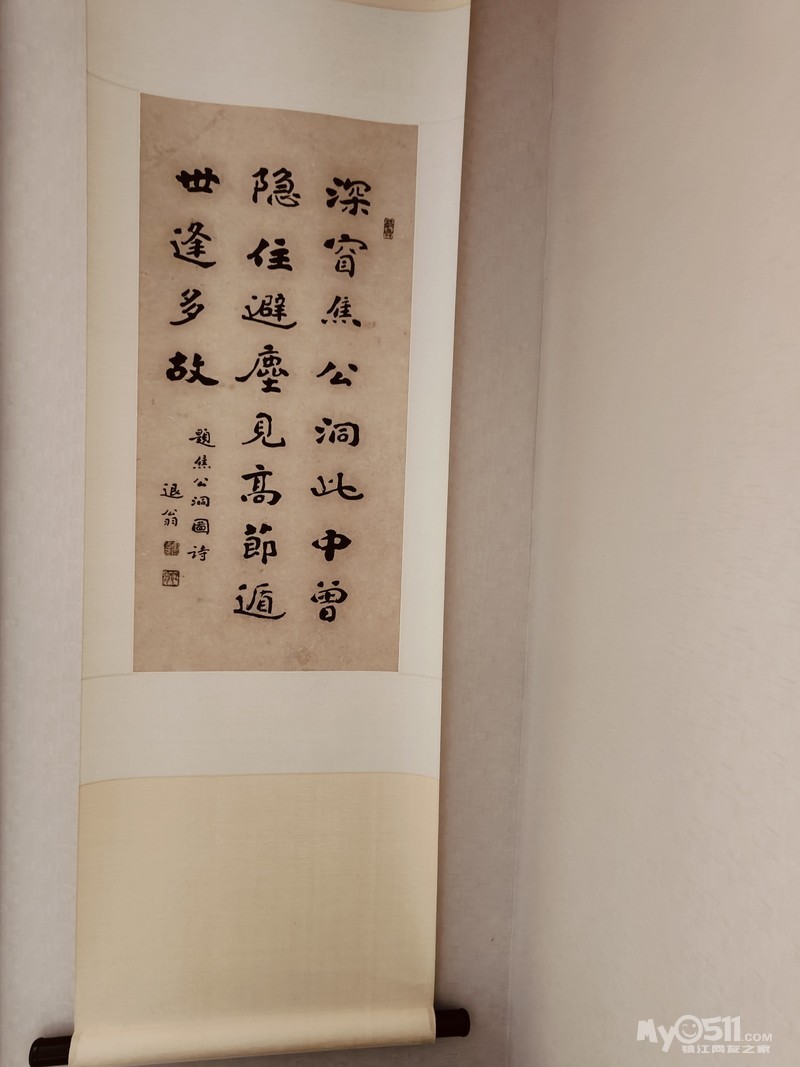 深窅焦公洞此中曾
隐住避塵見高節遁
世逢多故
題焦公洞圖詩
退翁
MyO511.COM
镇江网友之家